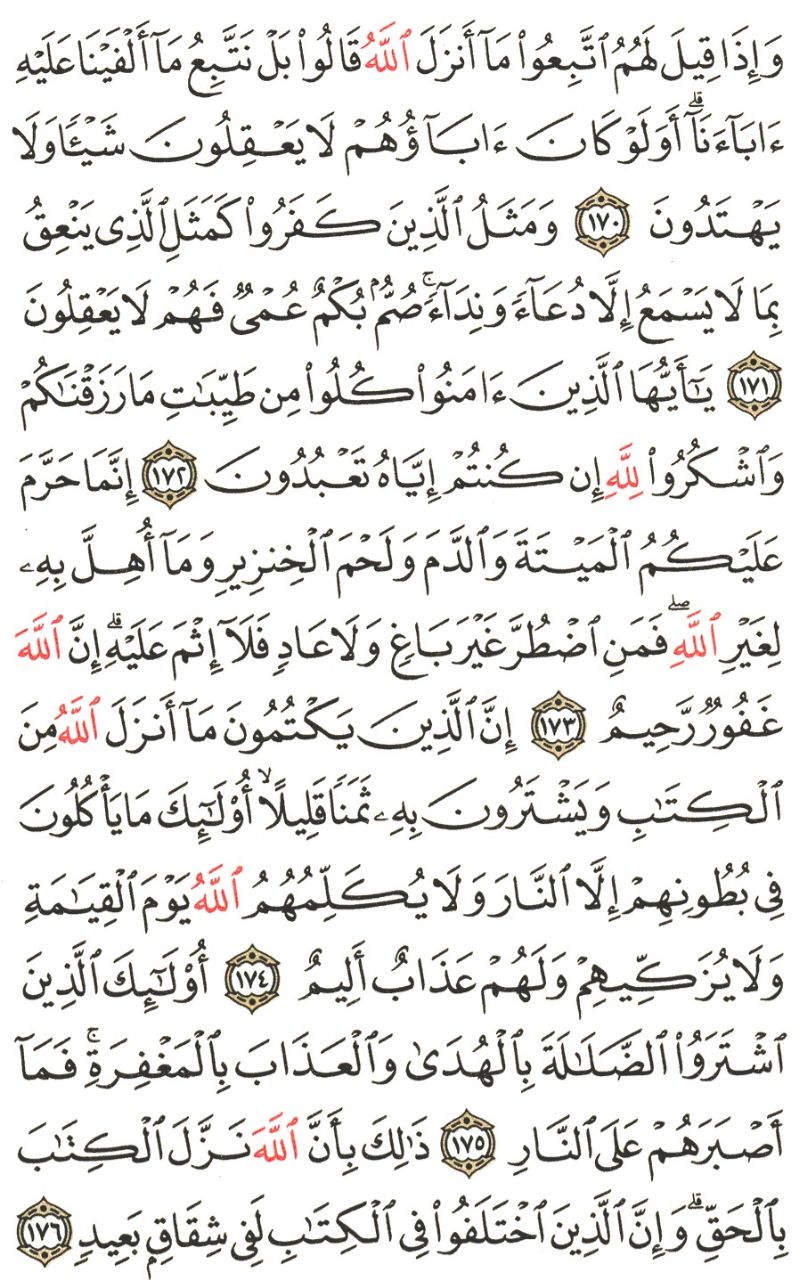 وَإِذَا قِيلَ لَهُمُ ٱتَّبِعُوا۟ مَآ أَنزَلَ ٱللَّهُ قَالُوا۟ بَلْ نَتَّبِعُ مَآ أَلْفَيْنَا عَلَيْهِ
ءَابَآءَنَآ ۗ أَوَلَوْ كَانَ ءَابَآؤُهُمْ لَا يَعْقِلُونَ شَيْـًٔا وَلَا
يَهْتَدُونَ ١٧٠ وَمَثَلُ ٱلَّذِينَ كَفَرُوا۟ كَمَثَلِ ٱلَّذِى يَنْعِقُ
بِمَا لَا يَسْمَعُ إِلَّا دُعَآءً وَنِدَآءً ۚ صُمٌّۢ بُكْمٌ عُمْىٌ فَهُمْ لَا يَعْقِلُونَ
١٧١ يَـٰٓأَيُّهَا ٱلَّذِينَ ءَامَنُوا۟ كُلُوا۟ مِن طَيِّبَـٰتِ مَا رَزَقْنَـٰكُمْ
وَٱشْكُرُوا۟ لِلَّهِ إِن كُنتُمْ إِيَّاهُ تَعْبُدُونَ ١٧٢ إِنَّمَا حَرَّمَ
عَلَيْكُمُ ٱلْمَيْتَةَ وَٱلدَّمَ وَلَحْمَ ٱلْخِنزِيرِ وَمَآ أُهِلَّ بِهِۦ
لِغَيْرِ ٱللَّهِ ۖ فَمَنِ ٱضْطُرَّ غَيْرَ بَاغٍ وَلَا عَادٍ فَلَآ إِثْمَ عَلَيْهِ ۗ إِنَّ ٱللَّهَ
غَفُورٌ رَّحِيمٌ ١٧٣ إِنَّ ٱلَّذِينَ يَكْتُمُونَ مَآ أَنزَلَ ٱللَّهُ مِنَ
ٱلْكِتَـٰبِ وَيَشْتَرُونَ بِهِۦ ثَمَنًا قَلِيلًا ۙ أُو۟لَـٰٓئِكَ مَا يَأْكُلُونَ
فِى بُطُونِهِمْ إِلَّا ٱلنَّارَ وَلَا يُكَلِّمُهُمُ ٱللَّهُ يَوْمَ ٱلْقِيَـٰمَةِ
وَلَا يُزَكِّيهِمْ وَلَهُمْ عَذَابٌ أَلِيمٌ ١٧٤ أُو۟لَـٰٓئِكَ ٱلَّذِينَ
ٱشْتَرَوُا۟ ٱلضَّلَـٰلَةَ بِٱلْهُدَىٰ وَٱلْعَذَابَ بِٱلْمَغْفِرَةِ ۚ فَمَآ
أَصْبَرَهُمْ عَلَى ٱلنَّارِ ١٧٥ ذَٰلِكَ بِأَنَّ ٱللَّهَ نَزَّلَ ٱلْكِتَـٰبَ
بِٱلْحَقِّ ۗ وَإِنَّ ٱلَّذِينَ ٱخْتَلَفُوا۟ فِى ٱلْكِتَـٰبِ لَفِى شِقَاقٍۭ بَعِيدٍ ١٧٦